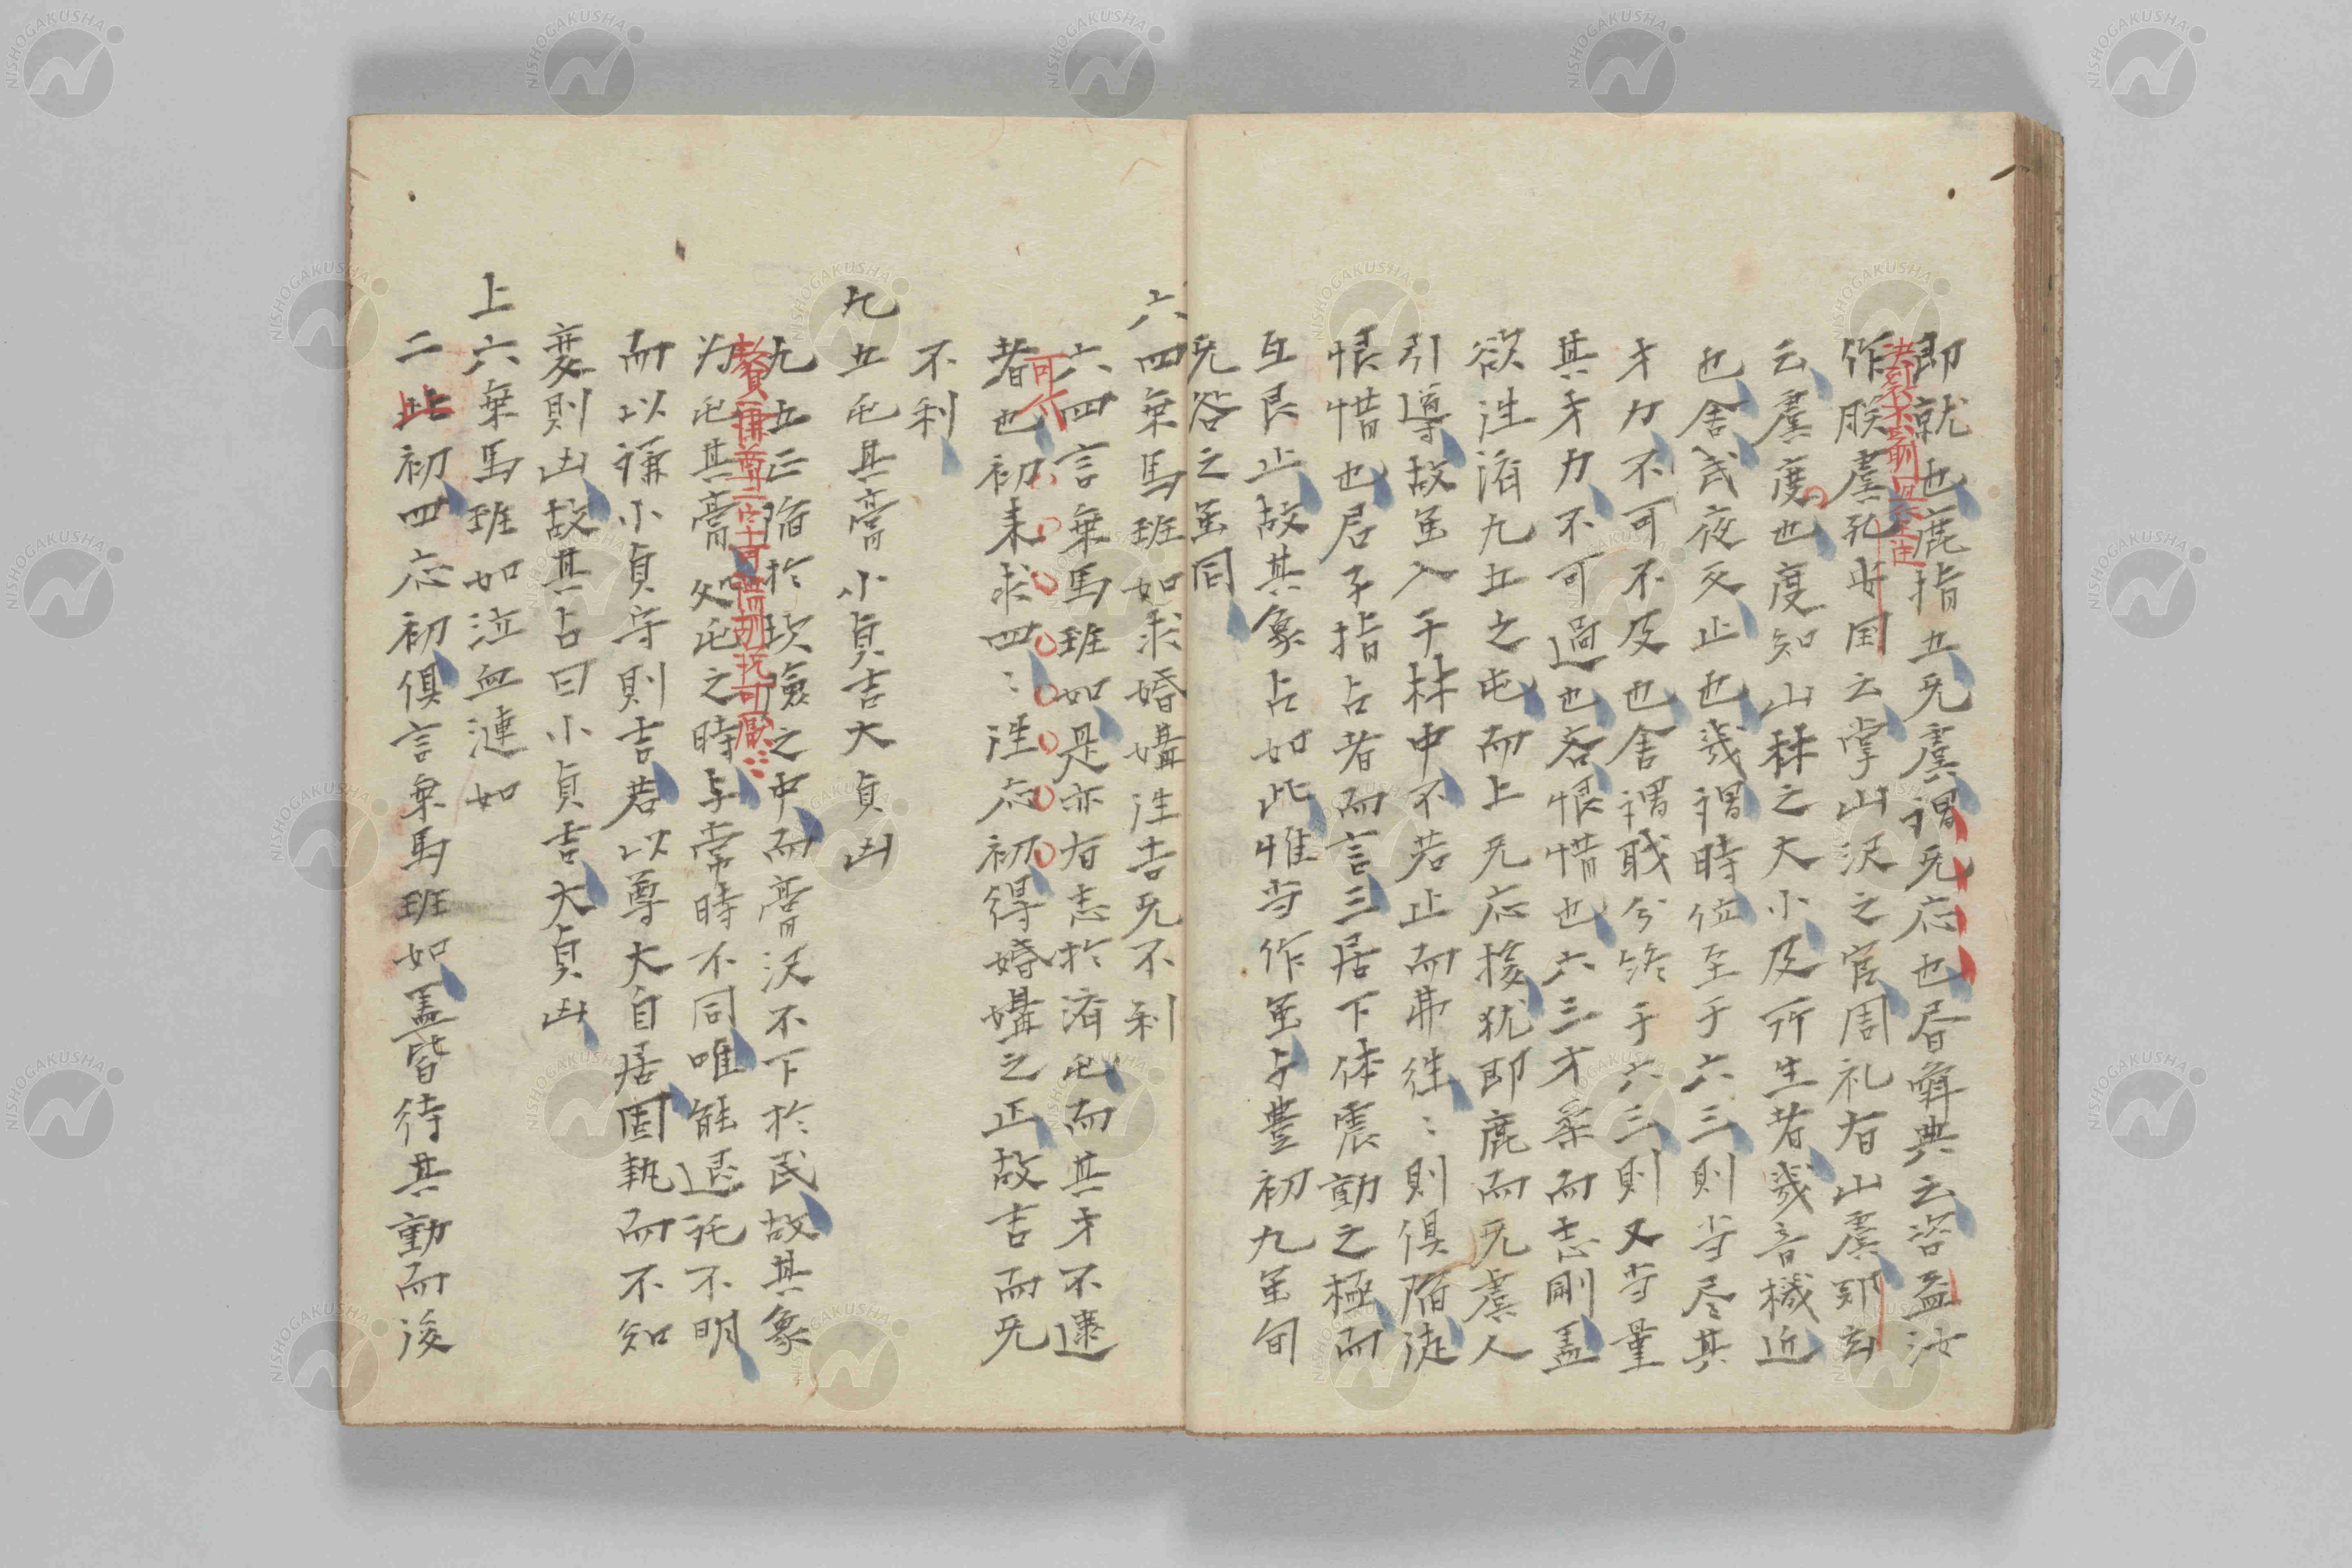 即就也鹿指五旡虞謂旡応也昏㖸典云咨益汝
作朕虞孔安国云掌山沢之官周礼有山虞鄭玄
云虞度也度知山林之大小及所生者幾音機近
也舎武夜反止也幾謂時位至于六三則当尽其
才力不可不及也舎謂戢兮終于六三則又当量
其才力不可過也吝恨惜也六三才柔而志剛盖
欲往済九五之屯而上旡応援犹即鹿而旡虞人
引導故虽入于林中不若止而弗往〻則俱陥徒
恨惜也君子指占者而言三居下体震動之極而
互艮止故其象占如此惟当作虽与豊初九虽旬
旡咎之虽同
六四乗馬班如求婚媾往吉旡不利
六四言乗馬班如是亦有志於済屯而其才不逮
者也初来求四〻往応初得婚媾之正故吉而旡
不利
九五屯其膏小貞吉大貞凶
九五正陥於坎険之中而膏沢不下於民故其象
为屯其膏処屯之時与常時不同唯能退託不明
而以謙小貞守則吉若以尊大自居固執而不知
変則凶故其占曰小貞吉大貞凶
上六乗馬班如泣血漣如
二此初四応初俱言乗馬班如盖皆待其動而後
可削